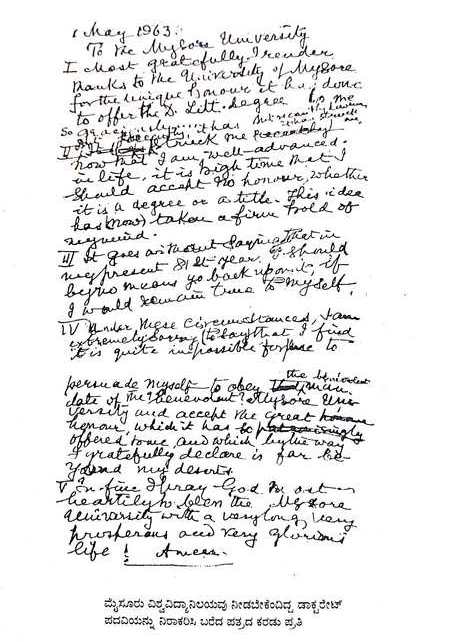 1 May 1963.
To the Mysore University
I Most gratefully I render
thanks to the University of Mysore
for the unique honour it has done
to offer the D. Litt. degree to me
so graciously.
II it has struck me
now that I am well-advanced
in life, it is high time that I
should accept no honour, whether
it is a degree or a title. This idea
has (now) taken a firm hold of
my mind.
III It goes without saying that in
my present 81st year I should
by no means go back upon it, if
I would remain true to myself.
IV Under these circumstances, I am
extremely sorry to say that I find
it is quite impossible for me to
persuade myself to obey the benevolent man
date of the benevolent Mysore Uni
versity and accept the great honour
honour which it has so
offered to me, and which by the way
I gratefully declare is far be
yond my deserts.
V In fine I pray God most
heartily to bless the Mysore
University with a very long, very
prosperous and very glorious
life! Amen.
ಮೈಸೂರು ವಿಶ್ವವಿದ್ಯಾನಿಲಯವು ನೀಡಬೇಕೆಂದಿದ್ದ ಡಾಕ್ಟರೇಟ್
ಪದವಿಯನ್ನು ನಿರಾಕರಿಸಿ ಬರೆದ ಪತ್ರದ ಕರಡು ಪ್ರತಿ